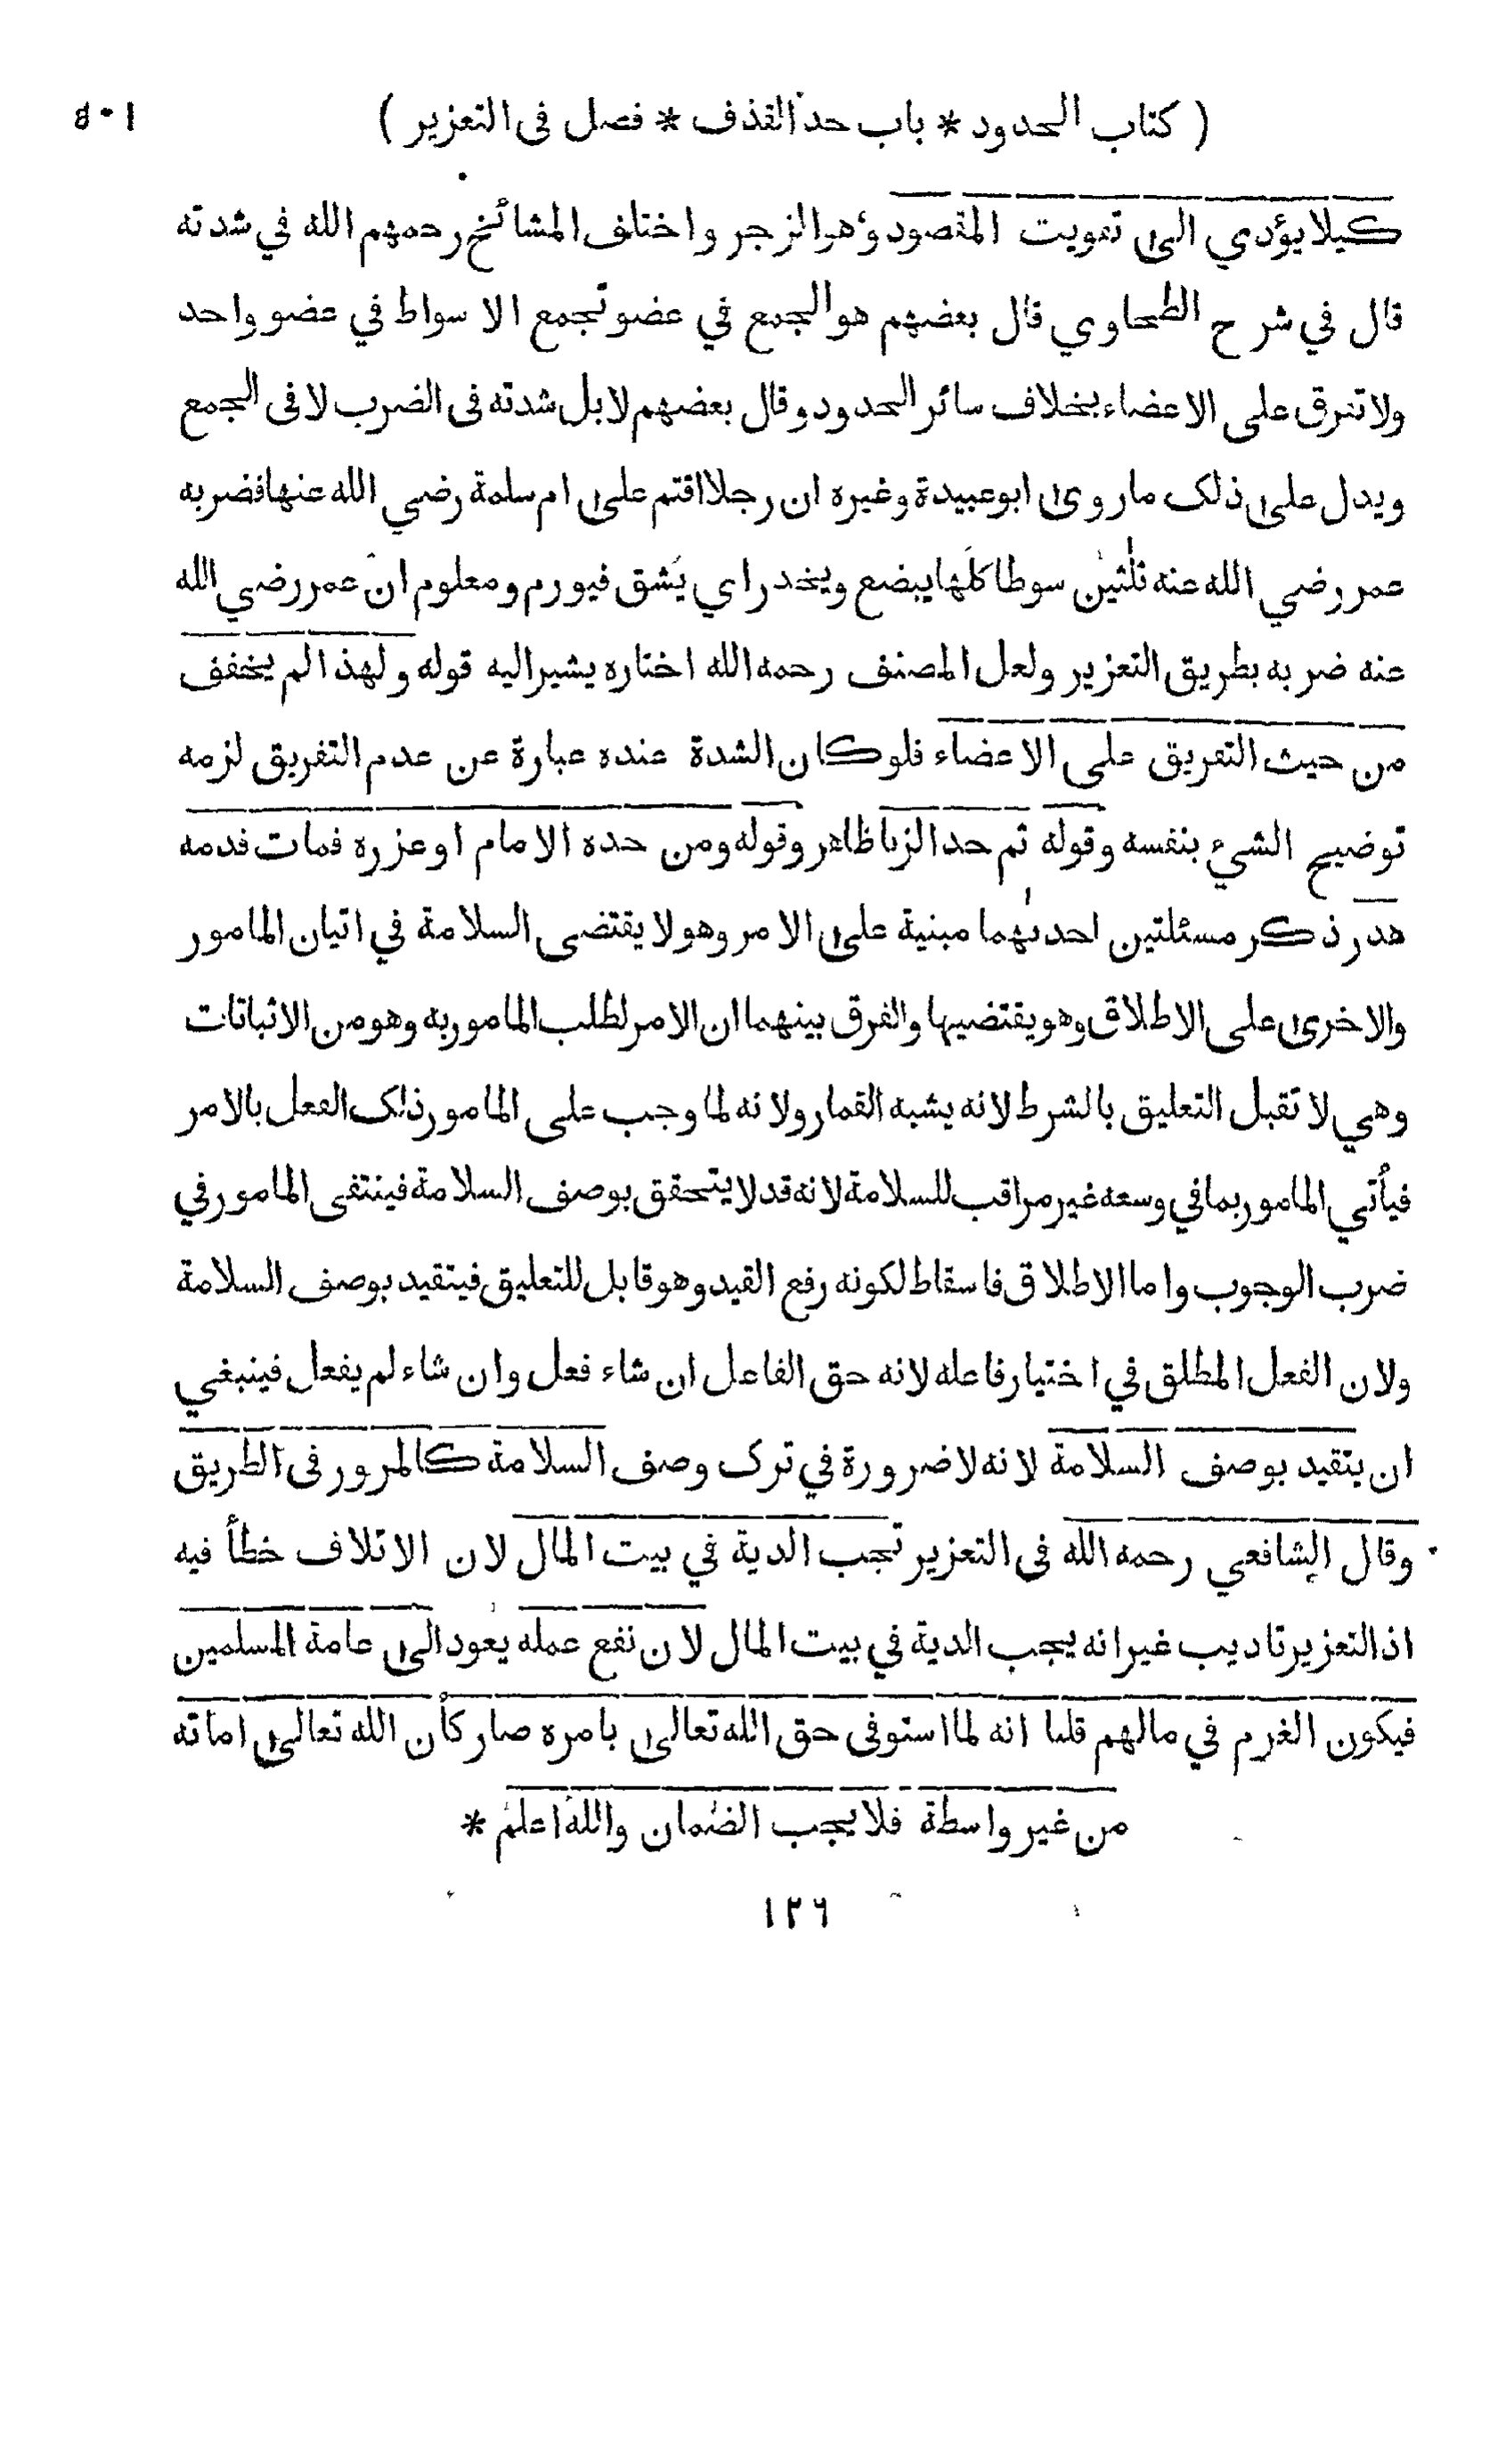 ( كتاب الحدود * باب حد القذف * فصل فى التعزير ) ٥٠١
كيلا يؤدي الى تفويت المقصود وهو الزجر واختلف المشائخ رحمهم الله في شدته
قال في شرح الطحاوي قال بعضهم هو الجمع في عضو تجمع الاسواط في عضو واحد
ولا تفرق على الاعضاء بخلاف سائر الحدود وقال بعضهم لا بل شدته فى الضرب لا فى الجمع
ويدل على ذلك ما روى ابو عبيدة وغيره ان رجلا اقتم على ام سلمة رضي الله عنها فضربه
عمر رضي الله عنه ثلثين سوطا كلها يبضع ويخدر اي يشق فيورم ومعلوم ان عمر رضي الله
عنه ضربه بطريق التعزير ولعل المصنف رحمه الله اختاره يشير اليه قوله ولهذا لم يخفف
من حيث التفريق على الاعضاء فلو كان الشدة عنده عبارة عن عدم التفريق لزمه
توضيح الشيء بنفسه وقوله ثم حد الزنا ظاهر وقوله ومن حده الامام او عزره فمات فدمه
هدر ذكر مسئلتين احدىهما مبنية على الامر وهو لا يقتضى السلامة في اتيان المامور
والاخرى على الاطلاق وهو يقتضيها والفرق بينهما ان الامر لطلب المامور به وهو من الاثباتات
وهي لا تقبل التعليق بالشرط لانه يشبه القمار ولانه لما وجب على المامور ذلك الفعل بالامر
فيأتي المامور بما في وسعه غير مراقب للسلامة لانه قد لا يتحقق بوصف السلامة فينتفى المامور في
ضرب الوجوب واما الاطلاق فاسقاط لكونه رفع القيد وهو قابل للتعليق فيتقيد بوصف السلامة
ولان الفعل المطلق في اختيار فاعله لانه حق الفاعل ان شاء فعل وان شاء لم يفعل فينبغي
ان يتقيد بوصف السلامة لانه لا ضرورة في ترك وصف السلامة كالمرور فى الطريق
وقال الشافعي رحمه الله فى التعزير تجب الدية في بيت المال لان الاتلاف خطأ فيه
اذ التعزير تاديب غير انه يجب الدية في بيت المال لان نفع عمله يعود الى عامة المسلمين
فيكون الغرم في مالهم قلنا انه لما استوفى حق الله تعالى بامره صار كأن الله تعالى اماته
من غير واسطة فلا يجب الضمان والله اعلم *
١٢٦